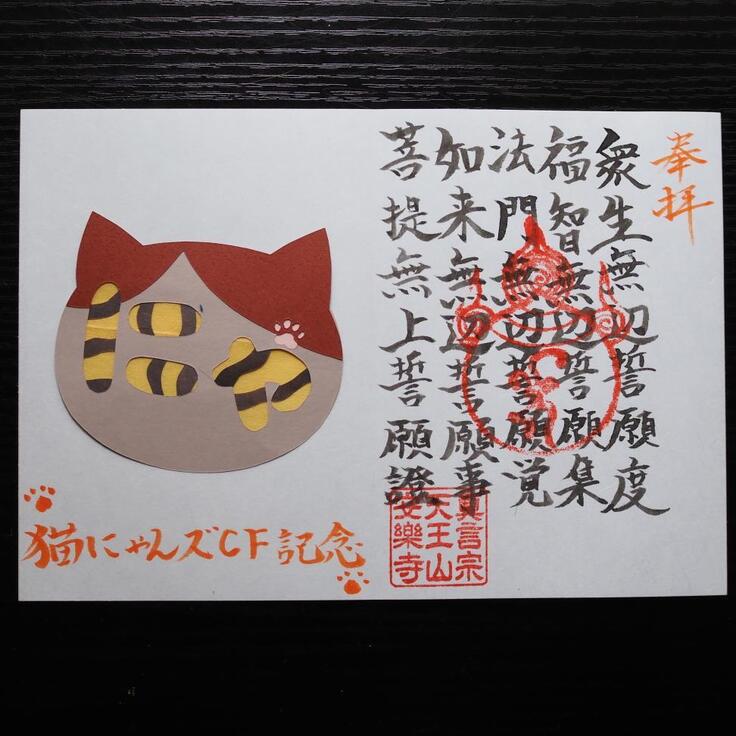 奉拝
衆生無辺誓願度
福智無辺誓願集
法門無辺誓願覚
如来無辺誓願事
菩提無上誓願證
真言宗
天王山
安樂寺
にゃ
猫にゃんズCF記念